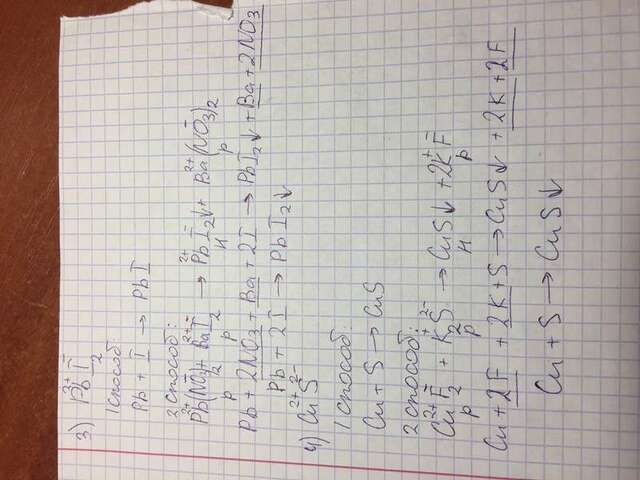 3) Pb²⁺I⁻₂
1 способ:
Pb + I → PbI
2 способ:
Pb²⁺(NO₃⁻)₂ + Ba²⁺I⁻₂ → Pb²⁺I⁻₂↓ + Ba²⁺(NO₃⁻)₂
р р н р
Pb + 2NO₃ + Ba + 2I → PbI₂↓ + Ba + 2NO₃
Pb + 2I → PbI₂↓
4) Cu²⁺S²⁻
1 способ:
Cu + S → CuS
2 способ:
Cu²⁺F⁻₂ + K⁺₂S²⁻ → CuS↓ + 2K⁺F⁻
р р н р
Cu + 2F + 2K + S → CuS↓ + 2K + 2F
Cu + S → CuS↓